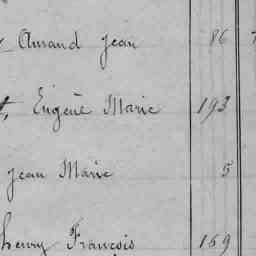 Amand Jean 86
Eugène Marie 193
Jean Marie 5
henry François 169